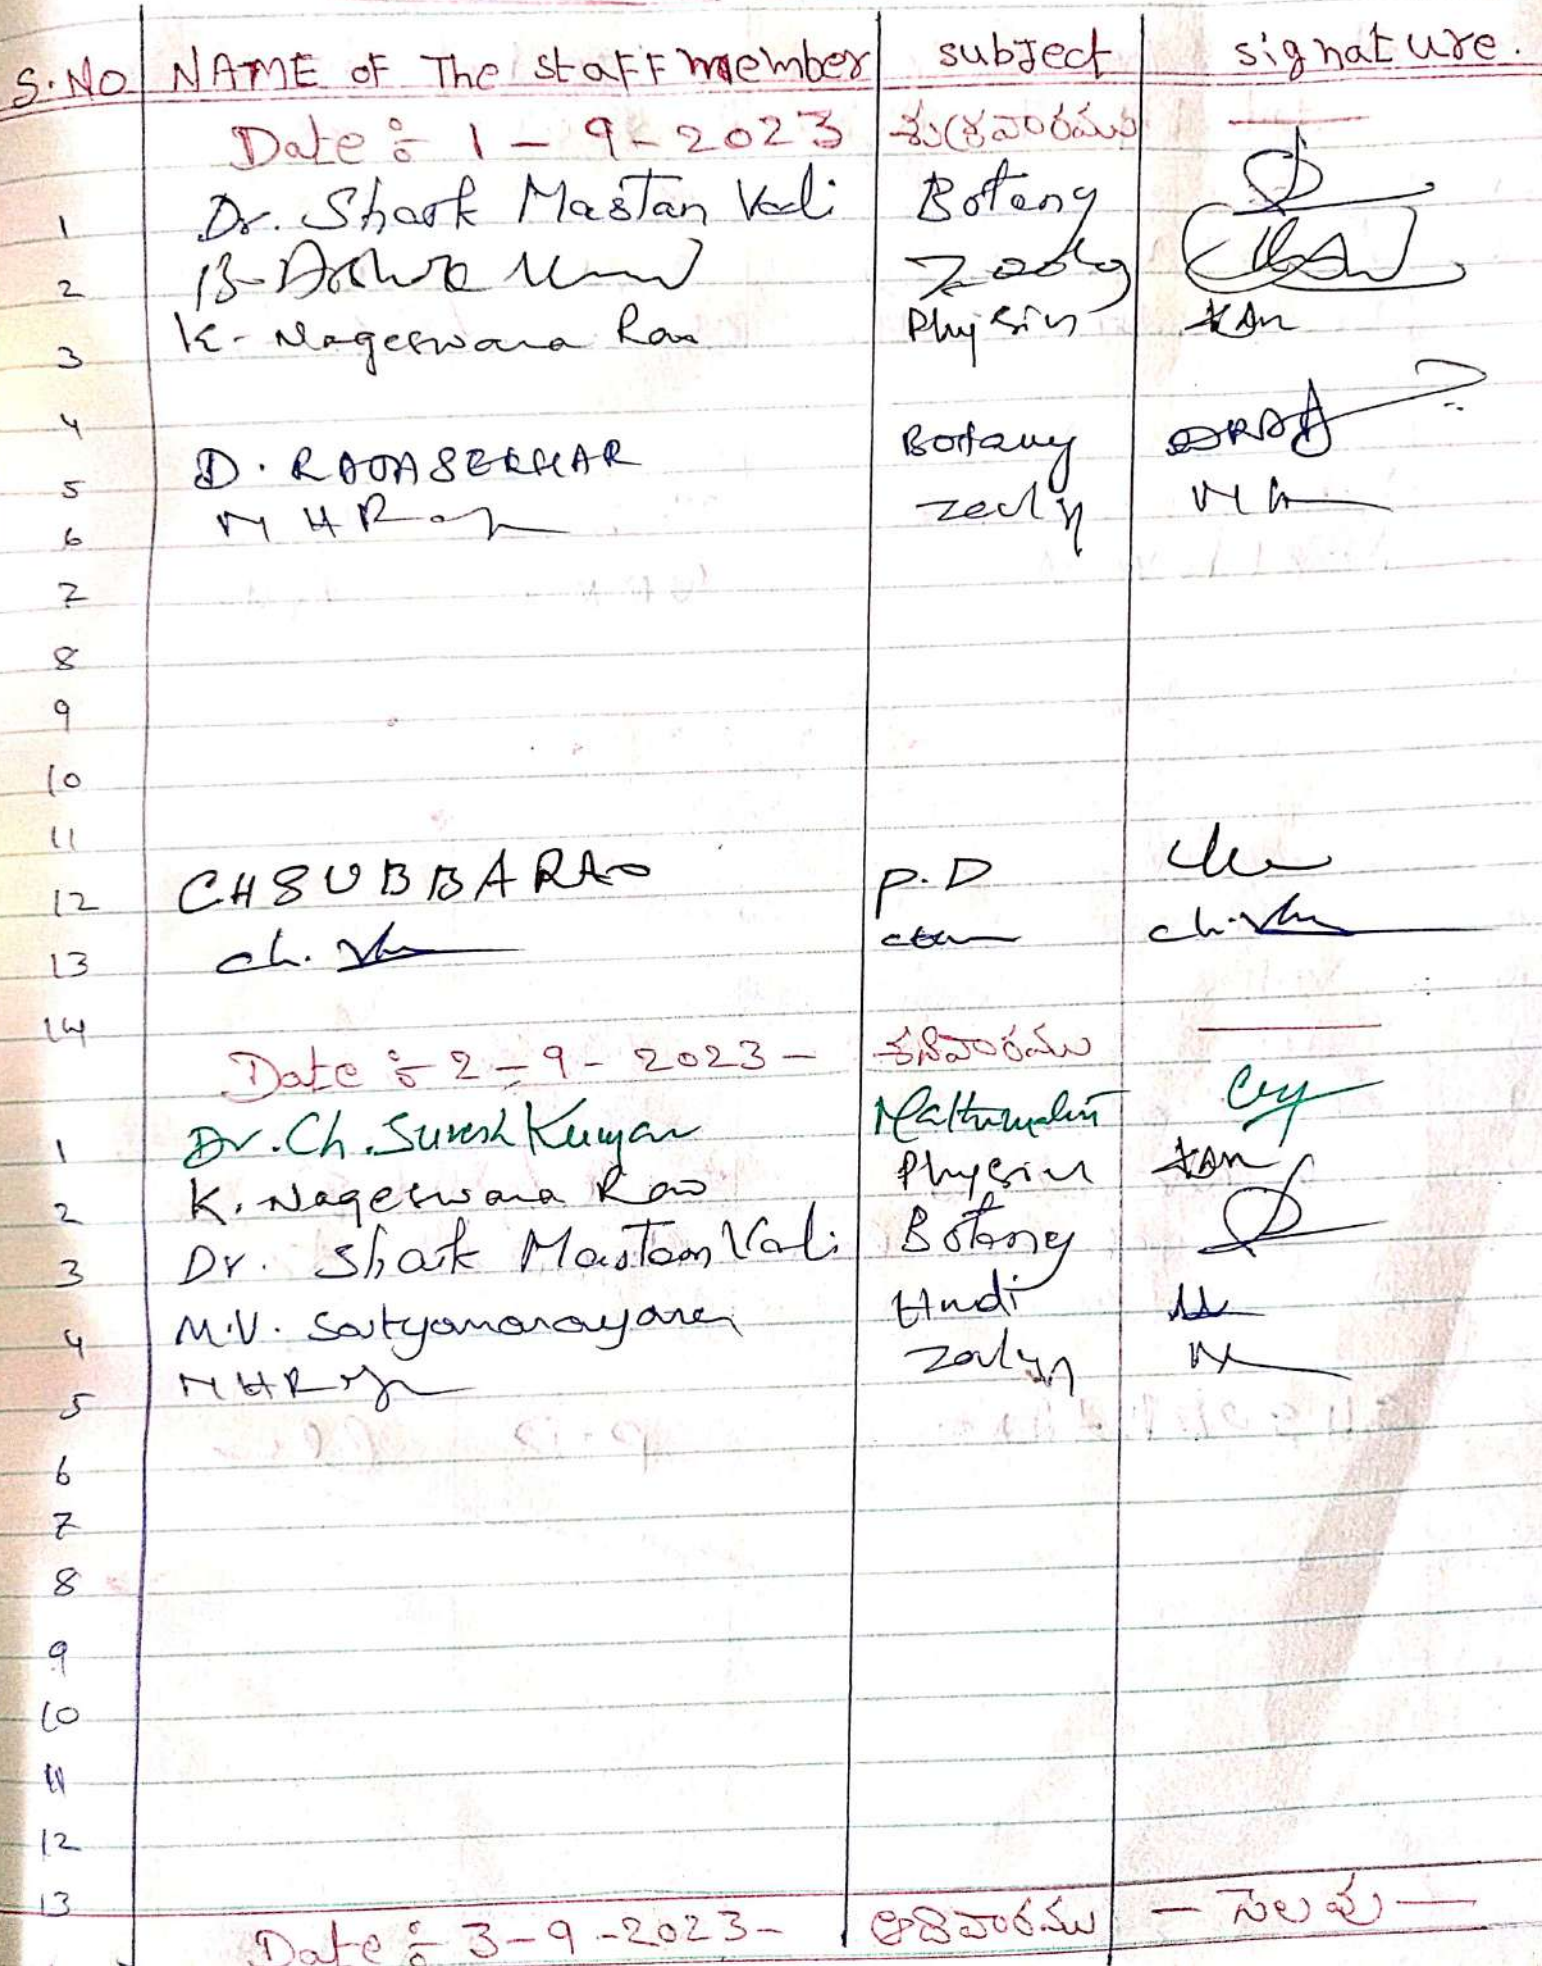 S.NO NAME OF The staFF member subJect signature.
Date : 1 - 9 - 2023 శుక్రవారము
1 Dr. Shaik Mastan Vali Botany
2 Zoology
3 K. Nageswara Rao Physics
4
5 D. RAJASEKHAR Botany
6 M H R
7
8
9
10
11
12 CH SUBBARAO P.D
13 ch.
14
Date : 2 - 9 - 2023 - శనివారము
1 Dr. Ch. Suresh Kumar Mathematics
2 K. Nageswara Rao Physics
3 Dr. Shaik Mastan Vali Botany
4 M.V. Satyanarayana Hindi
5 M H R
6
7
8
9
10
11
12
13
Date : 3 - 9 - 2023 - ఆదివారము - సెలవు -